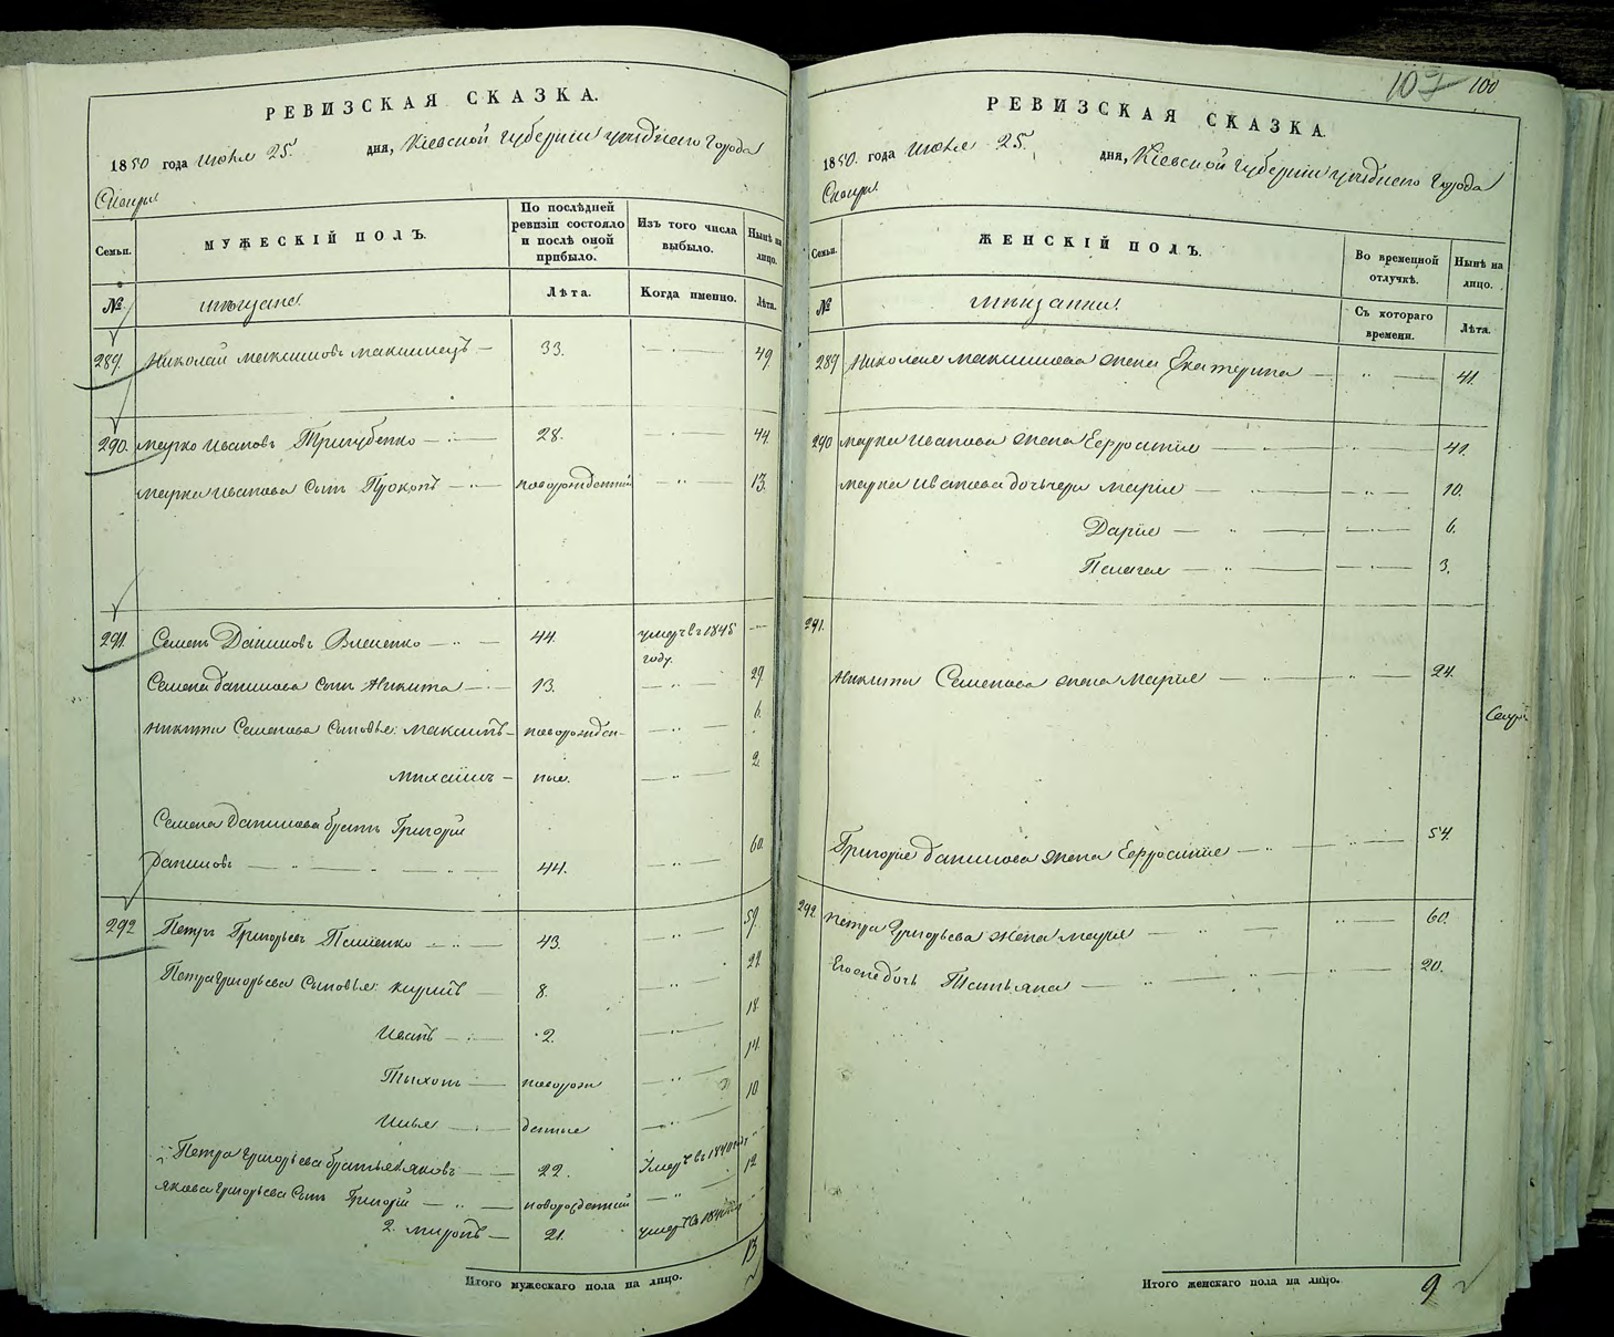 РЕВИЗСКАЯ СКАЗКА.
1850 года Июля 25. дня, Кіевской Губерніи уѣзднаго Города
Сквиры
Семьи.
МУЖЕСКІЙ ПОЛЪ.
По послѣдней ревизіи состояло и послѣ оной прибыло.
Изъ того числа выбыло.
Нынѣ на лицо.
№
мѣщане.
Лѣта.
Когда именно.
Лѣта.
289. Николай Максимовъ — 33. — 49.
290. Марко Ивановъ Тригубенко — 28. — 44.
Марка Иванова Сынъ Прокопъ — новорожденный — 13.
291. Семенъ Даниловъ — 44. умеръ въ 1845 —
году.
Семена Данилова Сынъ Никита — 13. — 29.
Никиты Семенова Сыновья: Максимъ — новорожден- — 6.
Михаилъ — ные. — 2.
Семена Данилова братъ Григорій
Даниловъ — 44. — 60.
292 Петръ Григорьевъ — 43. — 59.
Петра Григорьева Сыновья: Кирилъ — 8. — 22
Иванъ — 2. — 18.
Тихонъ — новорож — 14.
Илья — денные — 10
Петра Григорьева братья Яковъ — 22. Умеръ въ 1840
Якова Григорьева Сынъ Григорій — новорожденный — 12
2. Миронъ — 21. умеръ
Итого мужескаго пола на лицо.
13
100
РЕВИЗСКАЯ СКАЗКА.
1850. года Июля 25. дня, Кіевской Губерніи уѣзднаго Города
Сквиры
Семьи.
ЖЕНСКІЙ ПОЛЪ.
Во временной отлучкѣ.
Нынѣ на лицо.
№
мѣщанки.
Съ котораго времени.
Лѣта.
289 Николая Максимова жена Екатерина — 41.
290 Марка Иванова жена Ефросинія — 41.
Марка Иванова дочьчери Марія — 10.
Дарія — 6.
Пелагея — 3.
291.
Никиты Семенова жена Марія — 24.
Григорія Данилова жена Ефросинія — 54.
292 Петра Григорьева жена Марія — 60.
Его же дочь Татьяна — 20.
Итого женскаго пола на лицо.
9